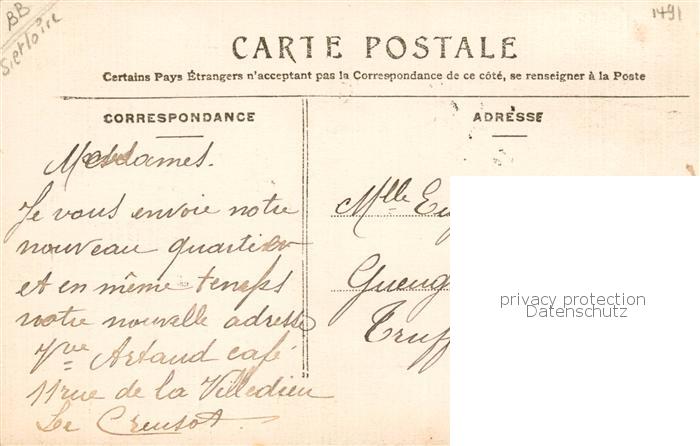 BB
S. et Loire
1491
CARTE POSTALE
Certains Pays Étrangers n'acceptent pas la Correspondance de ce côté, se renseigner à la Poste
CORRESPONDANCE
Mesdames.
Je vous envoie notre
nouveau quartier
et en même temps
notre nouvelle adresse
Vve Artaud café
11 rue de la Villedieu
Le Creusot.
ADRESSE
Mlle Eug
Gueug
Truff
privacy protection
Datenschutz